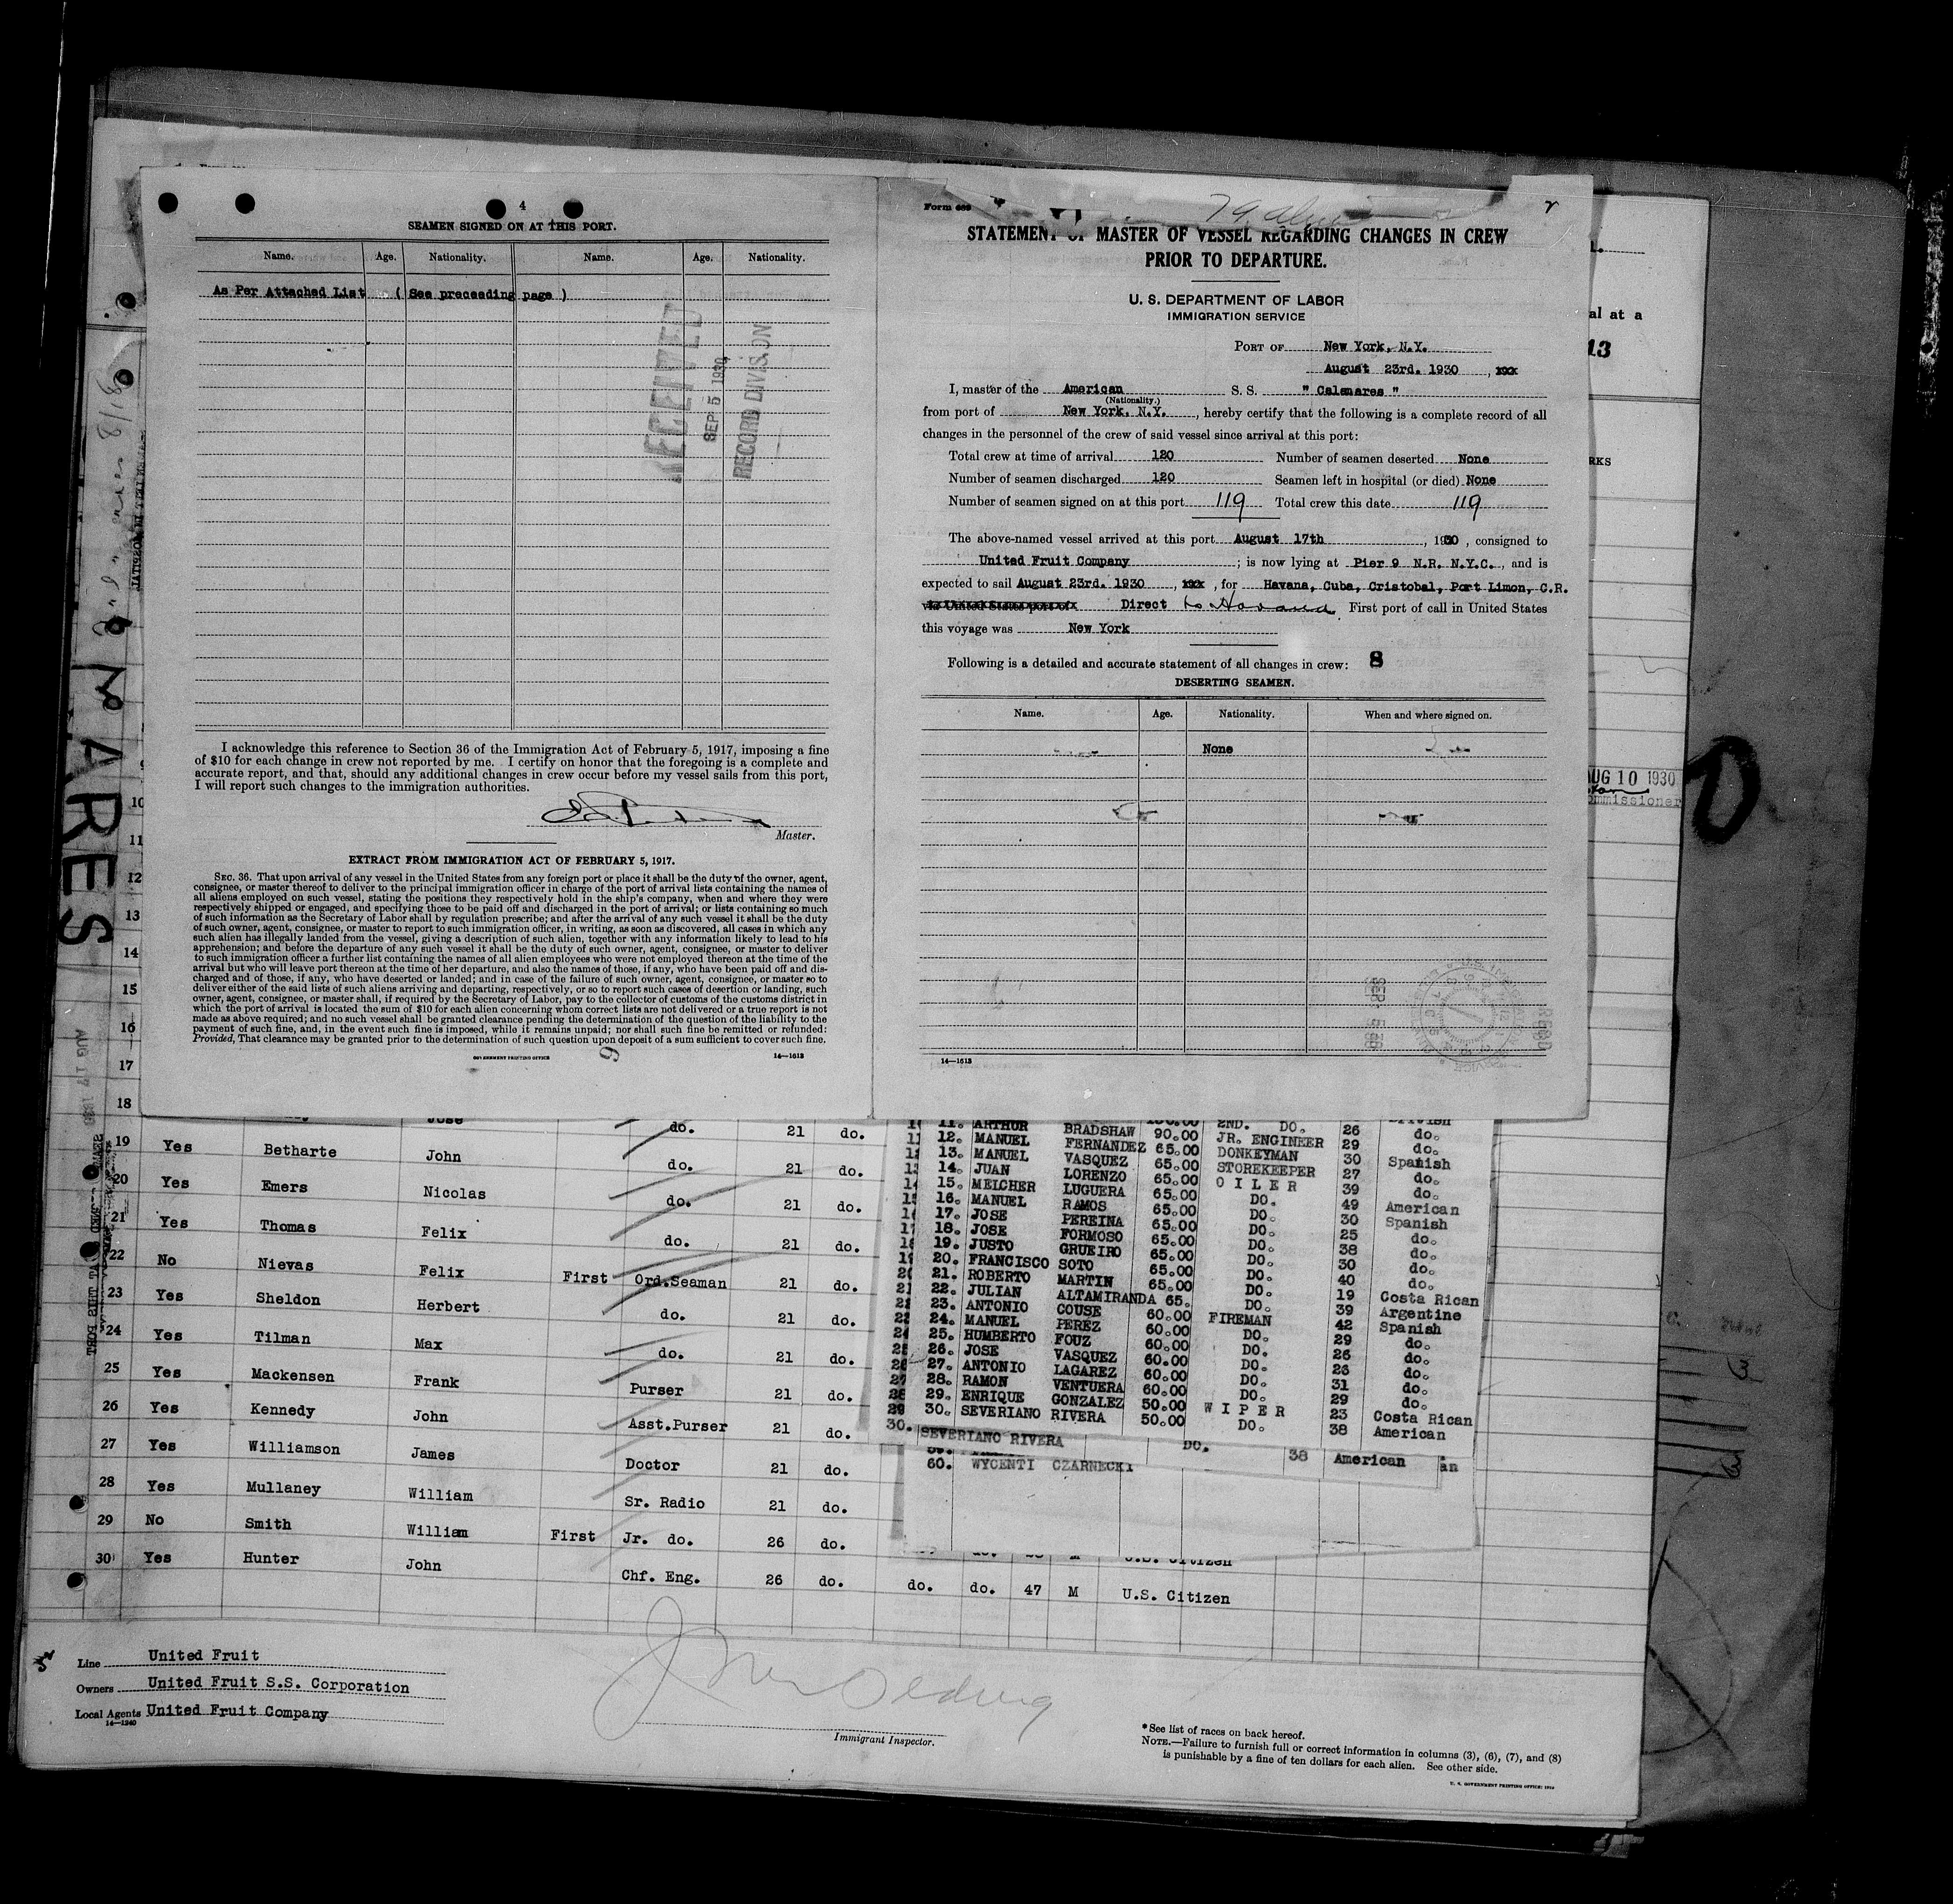 4
SEAMEN SIGNED ON AT THIS PORT.
Name. Age. Nationality. Name. Age. Nationality.
As Per Attached List ( See preceeding page )
RECEIVED
SEP 5 1930
RECORD DIVISION
I acknowledge this reference to Section 36 of the Immigration Act of February 5, 1917, imposing a fine
of $10 for each change in crew not reported by me. I certify on honor that the foregoing is a complete and
accurate report, and that, should any additional changes in crew occur before my vessel sails from this port,
I will report such changes to the immigration authorities.
Master.
EXTRACT FROM IMMIGRATION ACT OF FEBRUARY 5, 1917.
SEC. 36. That upon arrival of any vessel in the United States from any foreign port or place it shall be the duty of the owner, agent,
consignee, or master thereof to deliver to the principal immigration officer in charge of the port of arrival lists containing the names of
all aliens employed on such vessel, stating the positions they respectively hold in the ship's company, when and where they were
respectively shipped or engaged, and specifying those to be paid off and discharged in the port of arrival; or lists containing so much
of such information as the Secretary of Labor shall by regulation prescribe; and after the arrival of any such vessel it shall be the duty
of such owner, agent, consignee, or master to report to such immigration officer, in writing, as soon as discovered, all cases in which any
such alien has illegally landed from the vessel, giving a description of such alien, together with any information likely to lead to his
apprehension; and before the departure of any such vessel it shall be the duty of such owner, agent, consignee, or master to deliver
to such immigration officer a further list containing the names of all alien employees who were not employed thereon at the time of the
arrival but who will leave port thereon at the time of her departure, and also the names of those, if any, who have been paid off and dis-
charged and of those, if any, who have deserted or landed; and in case of the failure of such owner, agent, consignee, or master so to
deliver either of the said lists of such aliens arriving and departing, respectively, or so to report such cases of desertion or landing, such
owner, agent, consignee, or master shall, if required by the Secretary of Labor, pay to the collector of customs of the customs district in
which the port of arrival is located the sum of $10 for each alien concerning whom correct lists are not delivered or a true report is not
made as above required; and no such vessel shall be granted clearance pending the determination of the question of the liability to the
payment of such fine, and, in the event such fine is imposed, while it remains unpaid; nor shall such fine be remitted or refunded:
Provided, That clearance may be granted prior to the determination of such question upon deposit of a sum sufficient to cover such fine.
GOVERNMENT PRINTING OFFICE 14—1613
Form 689
STATEMENT OF MASTER OF VESSEL REGARDING CHANGES IN CREW
PRIOR TO DEPARTURE.
U. S. DEPARTMENT OF LABOR
IMMIGRATION SERVICE
PORT OF New York, N.Y.
August 23rd. 1930
I, master of the American S. S. " Calamares "
(Nationality.)
from port of New York, N.Y., hereby certify that the following is a complete record of all
changes in the personnel of the crew of said vessel since arrival at this port:
Total crew at time of arrival 120 Number of seamen deserted None
Number of seamen discharged 120 Seamen left in hospital (or died) None
Number of seamen signed on at this port 119 Total crew this date 119
The above-named vessel arrived at this port August 17th, 1930, consigned to
United Fruit Company; is now lying at Pier 9 N.R. N.Y.C., and is
expected to sail August 23rd. 1930, for Havana, Cuba, Cristobal, Port Limon, C.R.
via United States port of Direct to Havana First port of call in United States
this voyage was New York
Following is a detailed and accurate statement of all changes in crew: 8
DESERTING SEAMEN.
Name. Age. Nationality. When and where signed on.
None
14—1613
al at a
13
RKS
AUG 10 1930
ommissioner
ARES
10
11
12
13
14
15
16
17
18 Jose do. 21 do.
19 Yes Betharte John do. 21 do.
20 Yes Emers Nicolas do. 21 do.
21 Yes Thomas Felix do. 21 do.
22 No Nievas Felix First Ord.Seaman 21 do.
23 Yes Sheldon Herbert do. 21 do.
24 Yes Tilman Max do. 21 do.
25 Yes Mackensen Frank Purser 21 do.
26 Yes Kennedy John Asst.Purser 21 do.
27 Yes Williamson James Doctor 21 do.
28 Yes Mullaney William Sr. Radio 21 do.
29 No Smith William First Jr. do. 26 do.
30 Yes Hunter John Chf. Eng. 26 do. do. do. 47 M U.S. Citizen
11. ARTHUR BRADSHAW 2ND. DO. 26 do.
12. MANUEL FERNANDEZ 90.00 JR. ENGINEER 29 do.
13. MANUEL VASQUEZ 65.00 DONKEYMAN 30 Spanish
14. JUAN LORENZO 65.00 STOREKEEPER 27 do.
15. MELCHER LUGUERA 65.00 OILER 39 do.
16. MANUEL RAMOS 65.00 DO. 49 American
17. JOSE PEREINA 65.00 DO. 30 Spanish
18. JOSE FORMOSO 65.00 DO. 25 do.
19. JUSTO GRUEIRO 65.00 DO. 38 do.
20. FRANCISCO SOTO 65.00 DO. 30 do.
21. ROBERTO MARTIN 65.00 DO. 40 do.
22. JULIAN ALTAMIRANDA 65. DO. 19 Costa Rican
23. ANTONIO COUSE 60.00 FIREMAN 39 Argentine
24. MANUEL PEREZ 60.00 DO. 42 Spanish
25. HUMBERTO FOUZ 60.00 DO. 29 do.
26. JOSE VASQUEZ 60.00 DO. 26 do.
27. ANTONIO LAGAREZ 60.00 DO. 23 do.
28. RAMON VENTUERA 60.00 DO. 31 do.
29. ENRIQUE GONZALEZ 50.00 WIPER 29 do.
30. SEVERIANO RIVERA 50.00 DO. 23 Costa Rican
38 American
30. SEVERIANO RIVERA DO. 38 American
60. WYCENTI CZARNECKI
U.S. Citizen
Line United Fruit
Owners United Fruit S.S. Corporation
Local Agents United Fruit Company
14—1240
Immigrant Inspector.
*See list of races on back hereof.
NOTE.—Failure to furnish full or correct information in columns (3), (6), (7), and (8)
is punishable by a fine of ten dollars for each alien. See other side.
U. S. GOVERNMENT PRINTING OFFICE